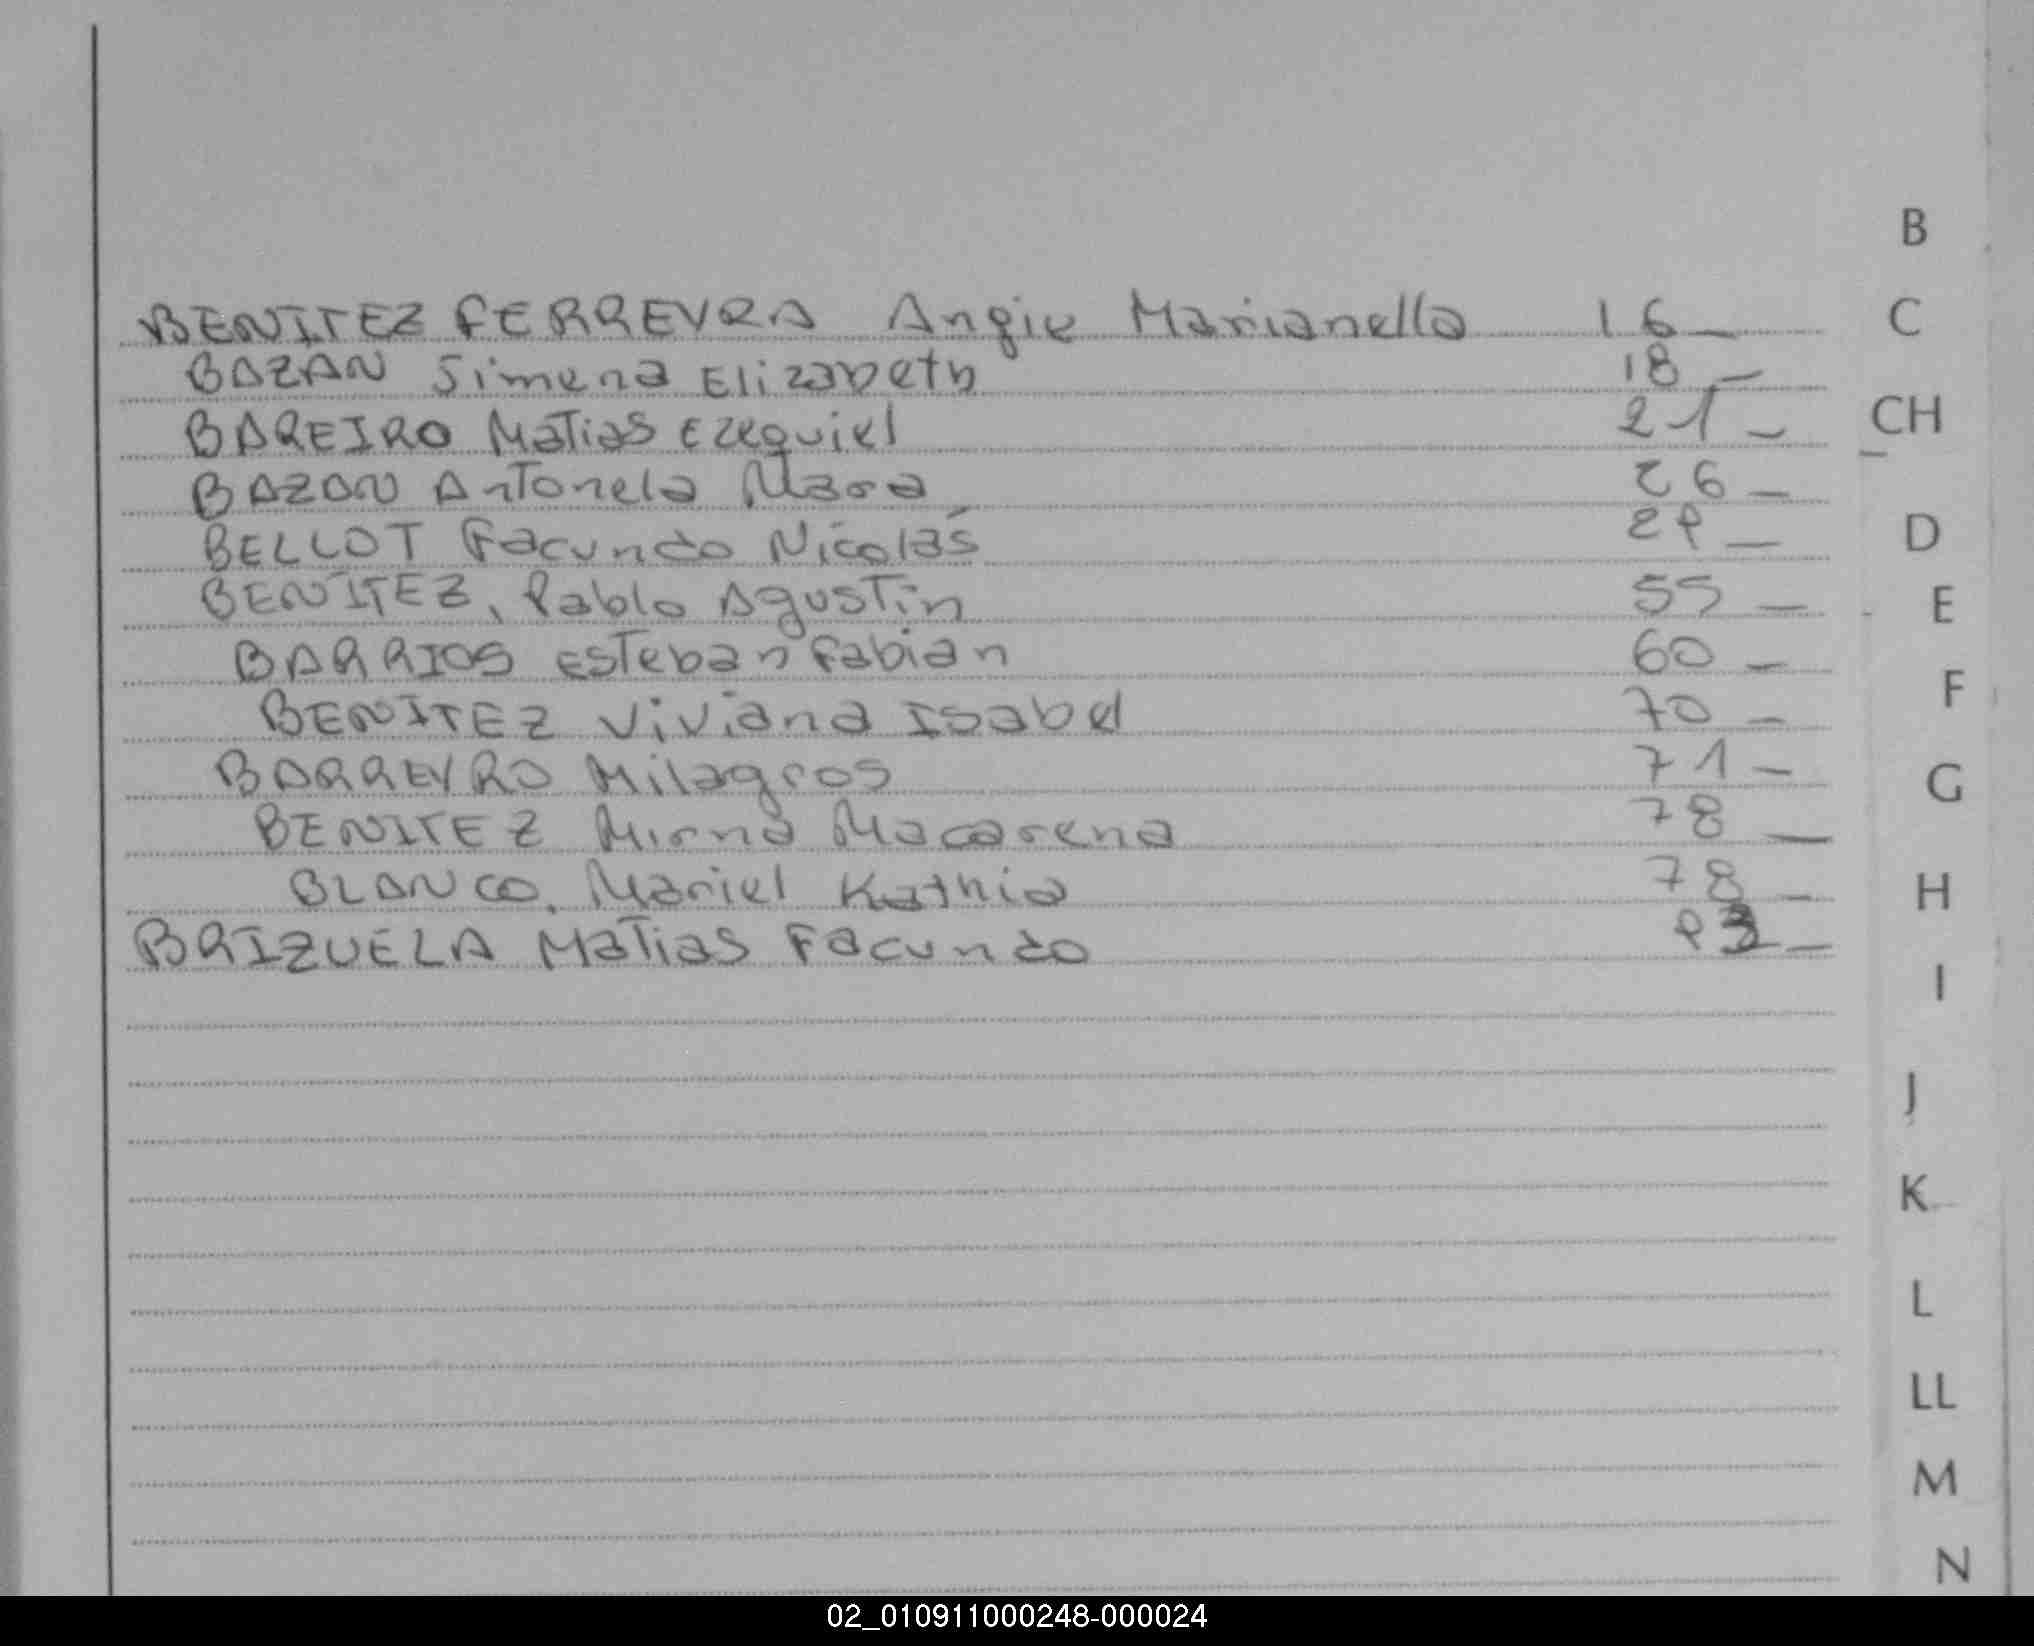 B
BENITEZ FERREYRA Angie Marianella 16 –
C
BAZAN Simena Elizabeth 18 –
BAREIRO Matias Ezequiel 21 –
CH
BAZAN Antonela Mara 26 –
BELLOT Facundo Nicolás 29 –
D
BENITEZ, Pablo Agustin 55 –
E
BARRIOS Esteban Fabian 60 –
BENITEZ Viviana Isabel 70 –
F
BARREYRO Milagros 71 –
G
BENITEZ Mirna Macarena 78 –
BLANCO, Mariel Kathia 78 –
H
BRIZUELA Matias Facundo 93 –
I
J
K
L
LL
M
N
02_010911000248-000024